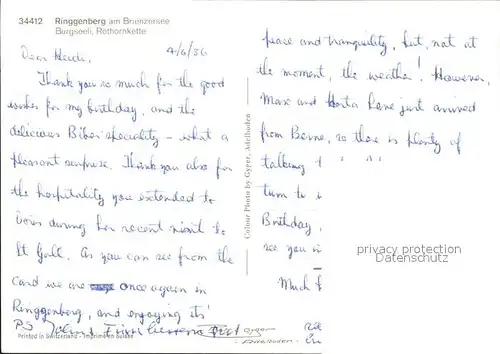 34412 Ringgenberg am Brienzersee
Burgseeli, Rothornkette
4/6/86
Dear Heidi,
Thank you so much for the good
wishes for my birthday, and the
delicious Biber speciality – what a
pleasant surprise. Thank you also for
the hospitality you extended to
Doris during her recent visit to
St Gall. As you can see from the
card we are once again in
Ringgenberg, and enjoying its'
PS
Printed in Switzerland - Imprimé en Suisse
Colour Photo by Gyger, Adelboden
peace and tranquility, but, not at
the moment, the weather! However,
Max and Herta have just arrived
from Berne, so there is plenty of
talking t
turn to
Birthday,
see you
Much
Gyger
Adelboden
privacy protection
Datenschutz